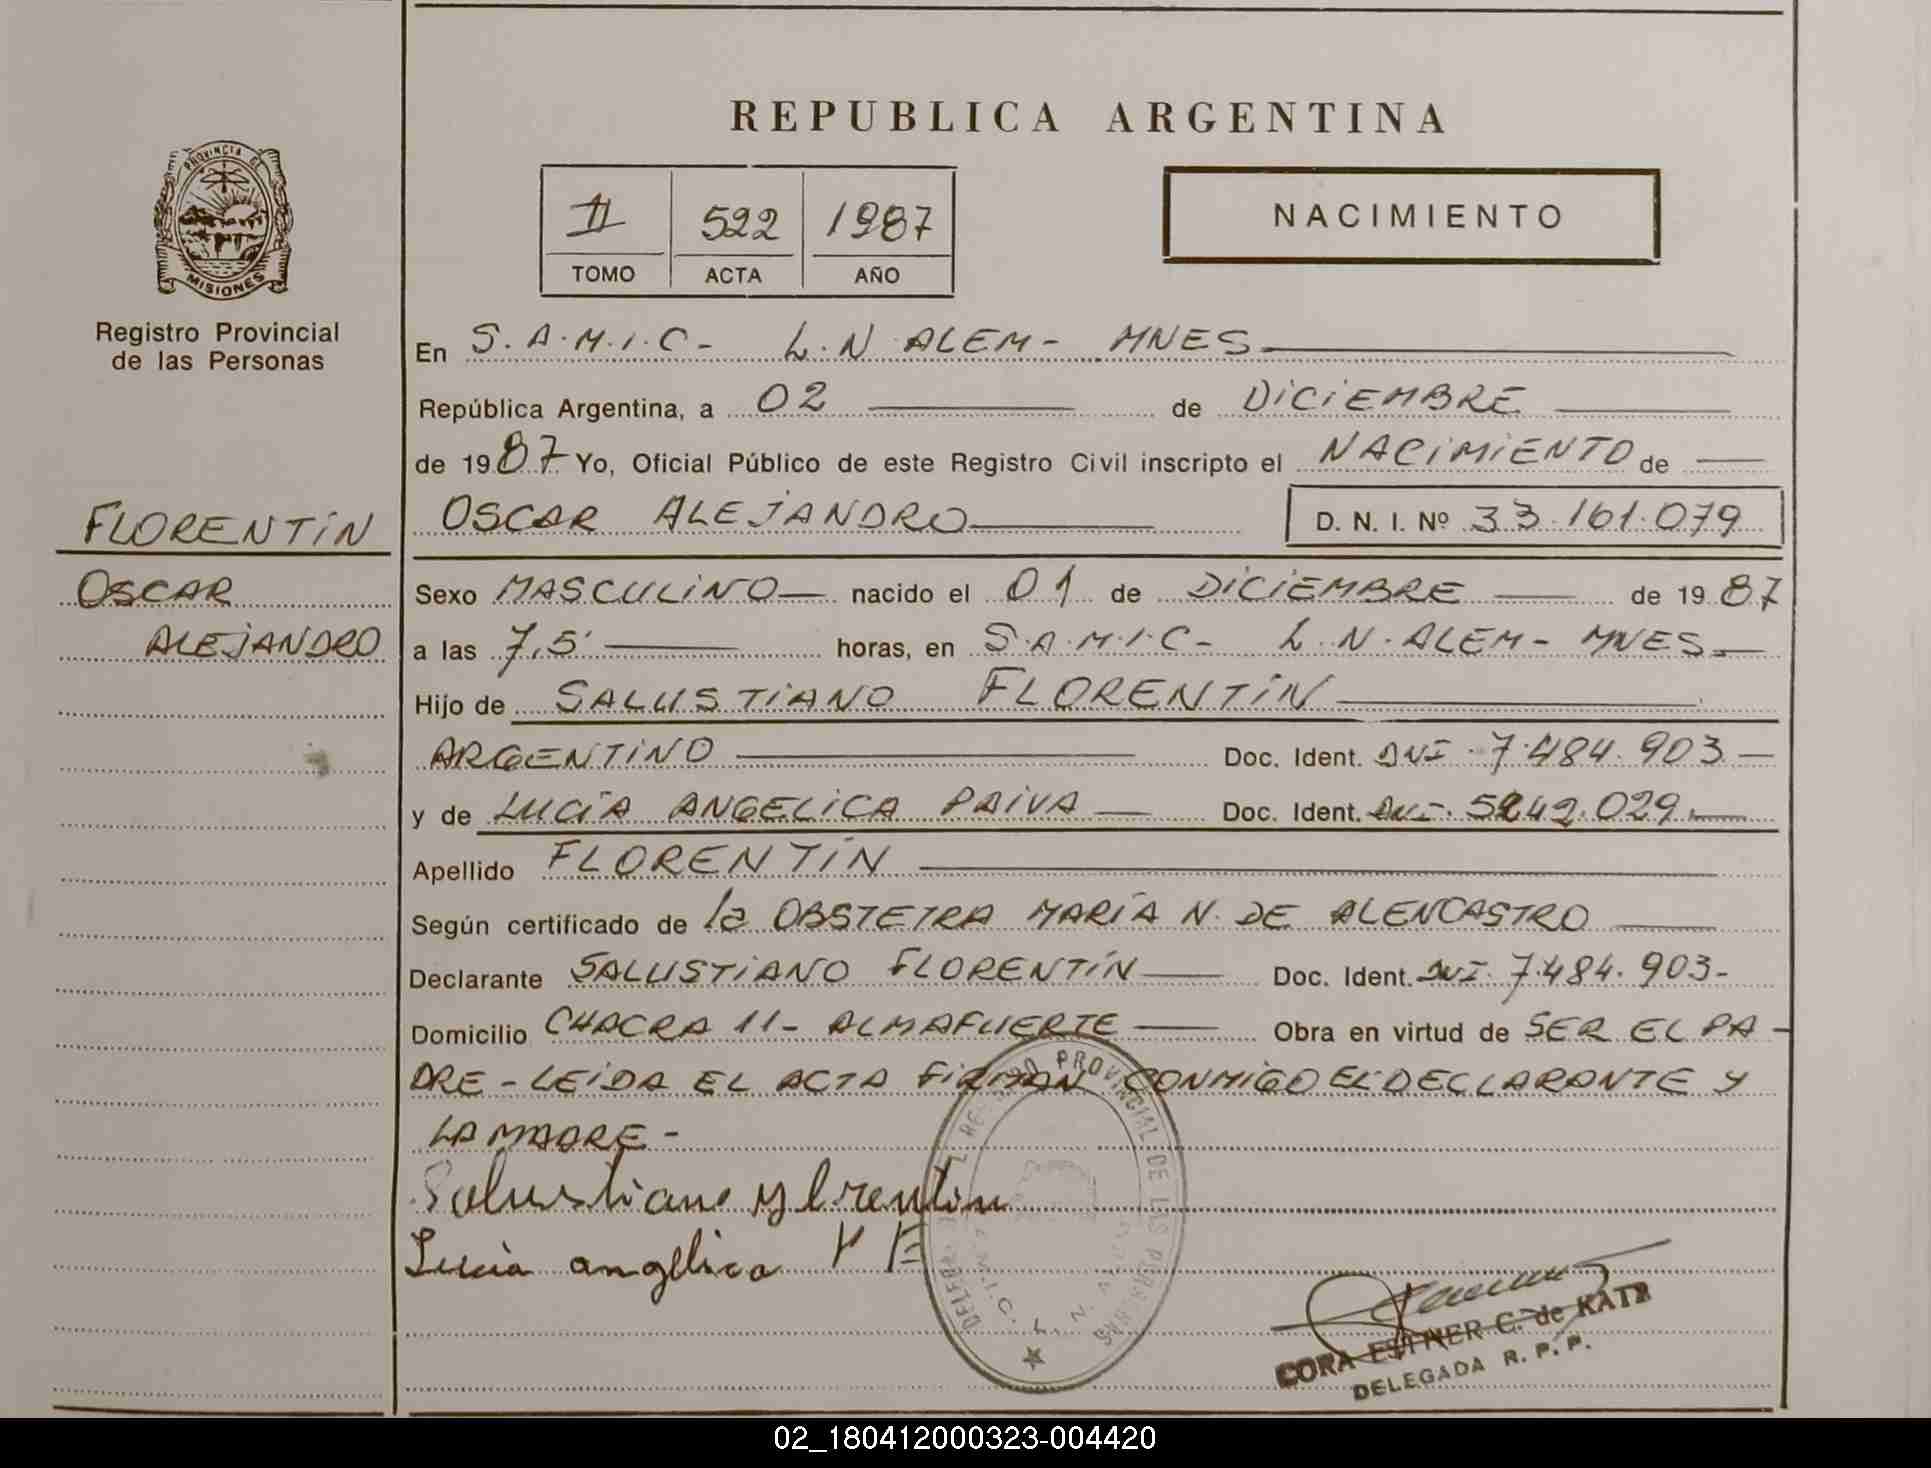 REPUBLICA ARGENTINA
PROVINCIA DE
MISIONES
Registro Provincial
de las Personas
II 522 1987
TOMO ACTA AÑO
NACIMIENTO
En S.A.M.I.C- L.N ALEM- MNES
República Argentina, a 02 de DICIEMBRE
de 1987 Yo, Oficial Público de este Registro Civil inscripto el NACIMIENTO de
OSCAR ALEJANDRO D. N. I. Nº 33.161.079
FLORENTIN
OSCAR
ALEJANDRO
Sexo MASCULINO nacido el 01 de DICIEMBRE de 1987
a las 7,5' horas, en S.A.M.I.C- L.N.ALEM- MNES.
Hijo de SALUSTIANO FLORENTIN
ARGENTINO Doc. Ident. DNI.7.484.903
y de LUCÍA ANGELICA PAIVA Doc. Ident. DNI. 5242.029
Apellido FLORENTIN
Según certificado de la OBSTETRA MARÍA N. DE ALENCASTRO
Declarante SALUSTIANO FLORENTÍN Doc. Ident. DNI. 7.484.903-
Domicilio CHACRA 11- ALMAFUERTE Obra en virtud de SER EL PA-
DRE-LEIDA EL ACTA FIRMAN CONMIGO EL DECLARANTE Y
LA MADRE-
Salustiano Florentin
Lucia angelica P
REGISTRO PROVINCIAL DE LAS PERSONAS
S.A.M.I.C. L.N. ALEM
CORA ESTHER C. de KATZ
DELEGADA R.P.P.
02_180412000323-004420